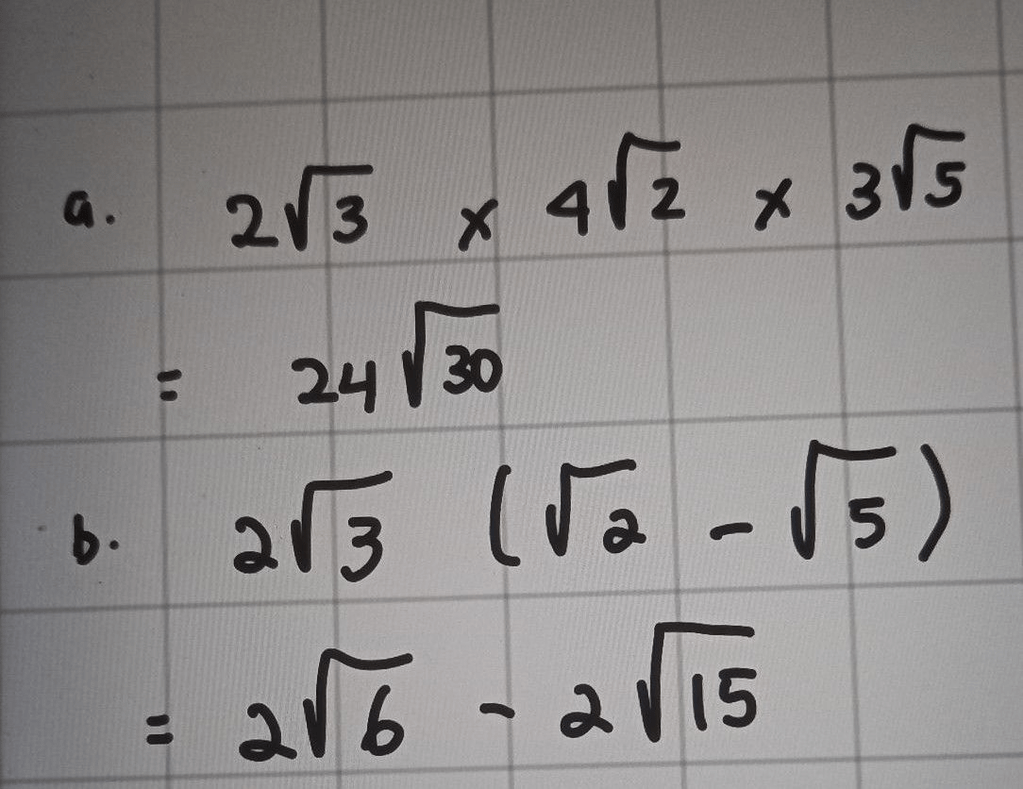 a. 2√3 x 4√2 x 3√5
= 24√30
b. 2√3 (√2 - √5)
= 2√6 - 2√15